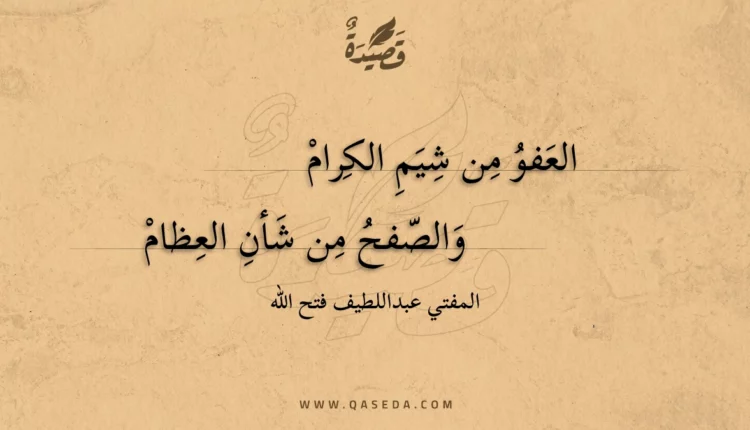 قَصِيْدَةٌ
العَفوُ مِن شِيَمِ الكِرامْ
وَالصّفحُ مِن شَأنِ العِظامْ
المفتي عبداللطيف فتح الله
WWW.QASEDA.COM